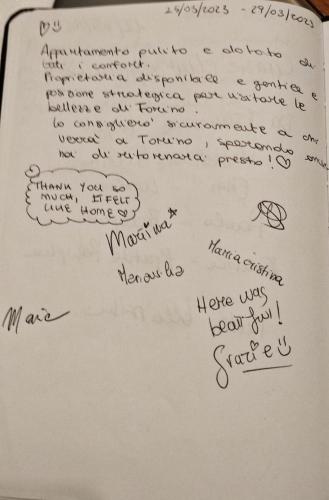 25/03/2023 - 29/03/2023
Appuntamento pulito e dotato di
tutti i confort.
Proprietaria disponibile e gentile e
posizione strategica per visitare le
bellezze di Torino.
Lo consiglierò sicuramente a chi
verrà a Torino, sperando
di ritornarci presto!
THANK YOU SO
MUCH, IT FELT
LIKE HOME
Martina
Mariacristina
Marie
Here was
beatiful!
Grazie